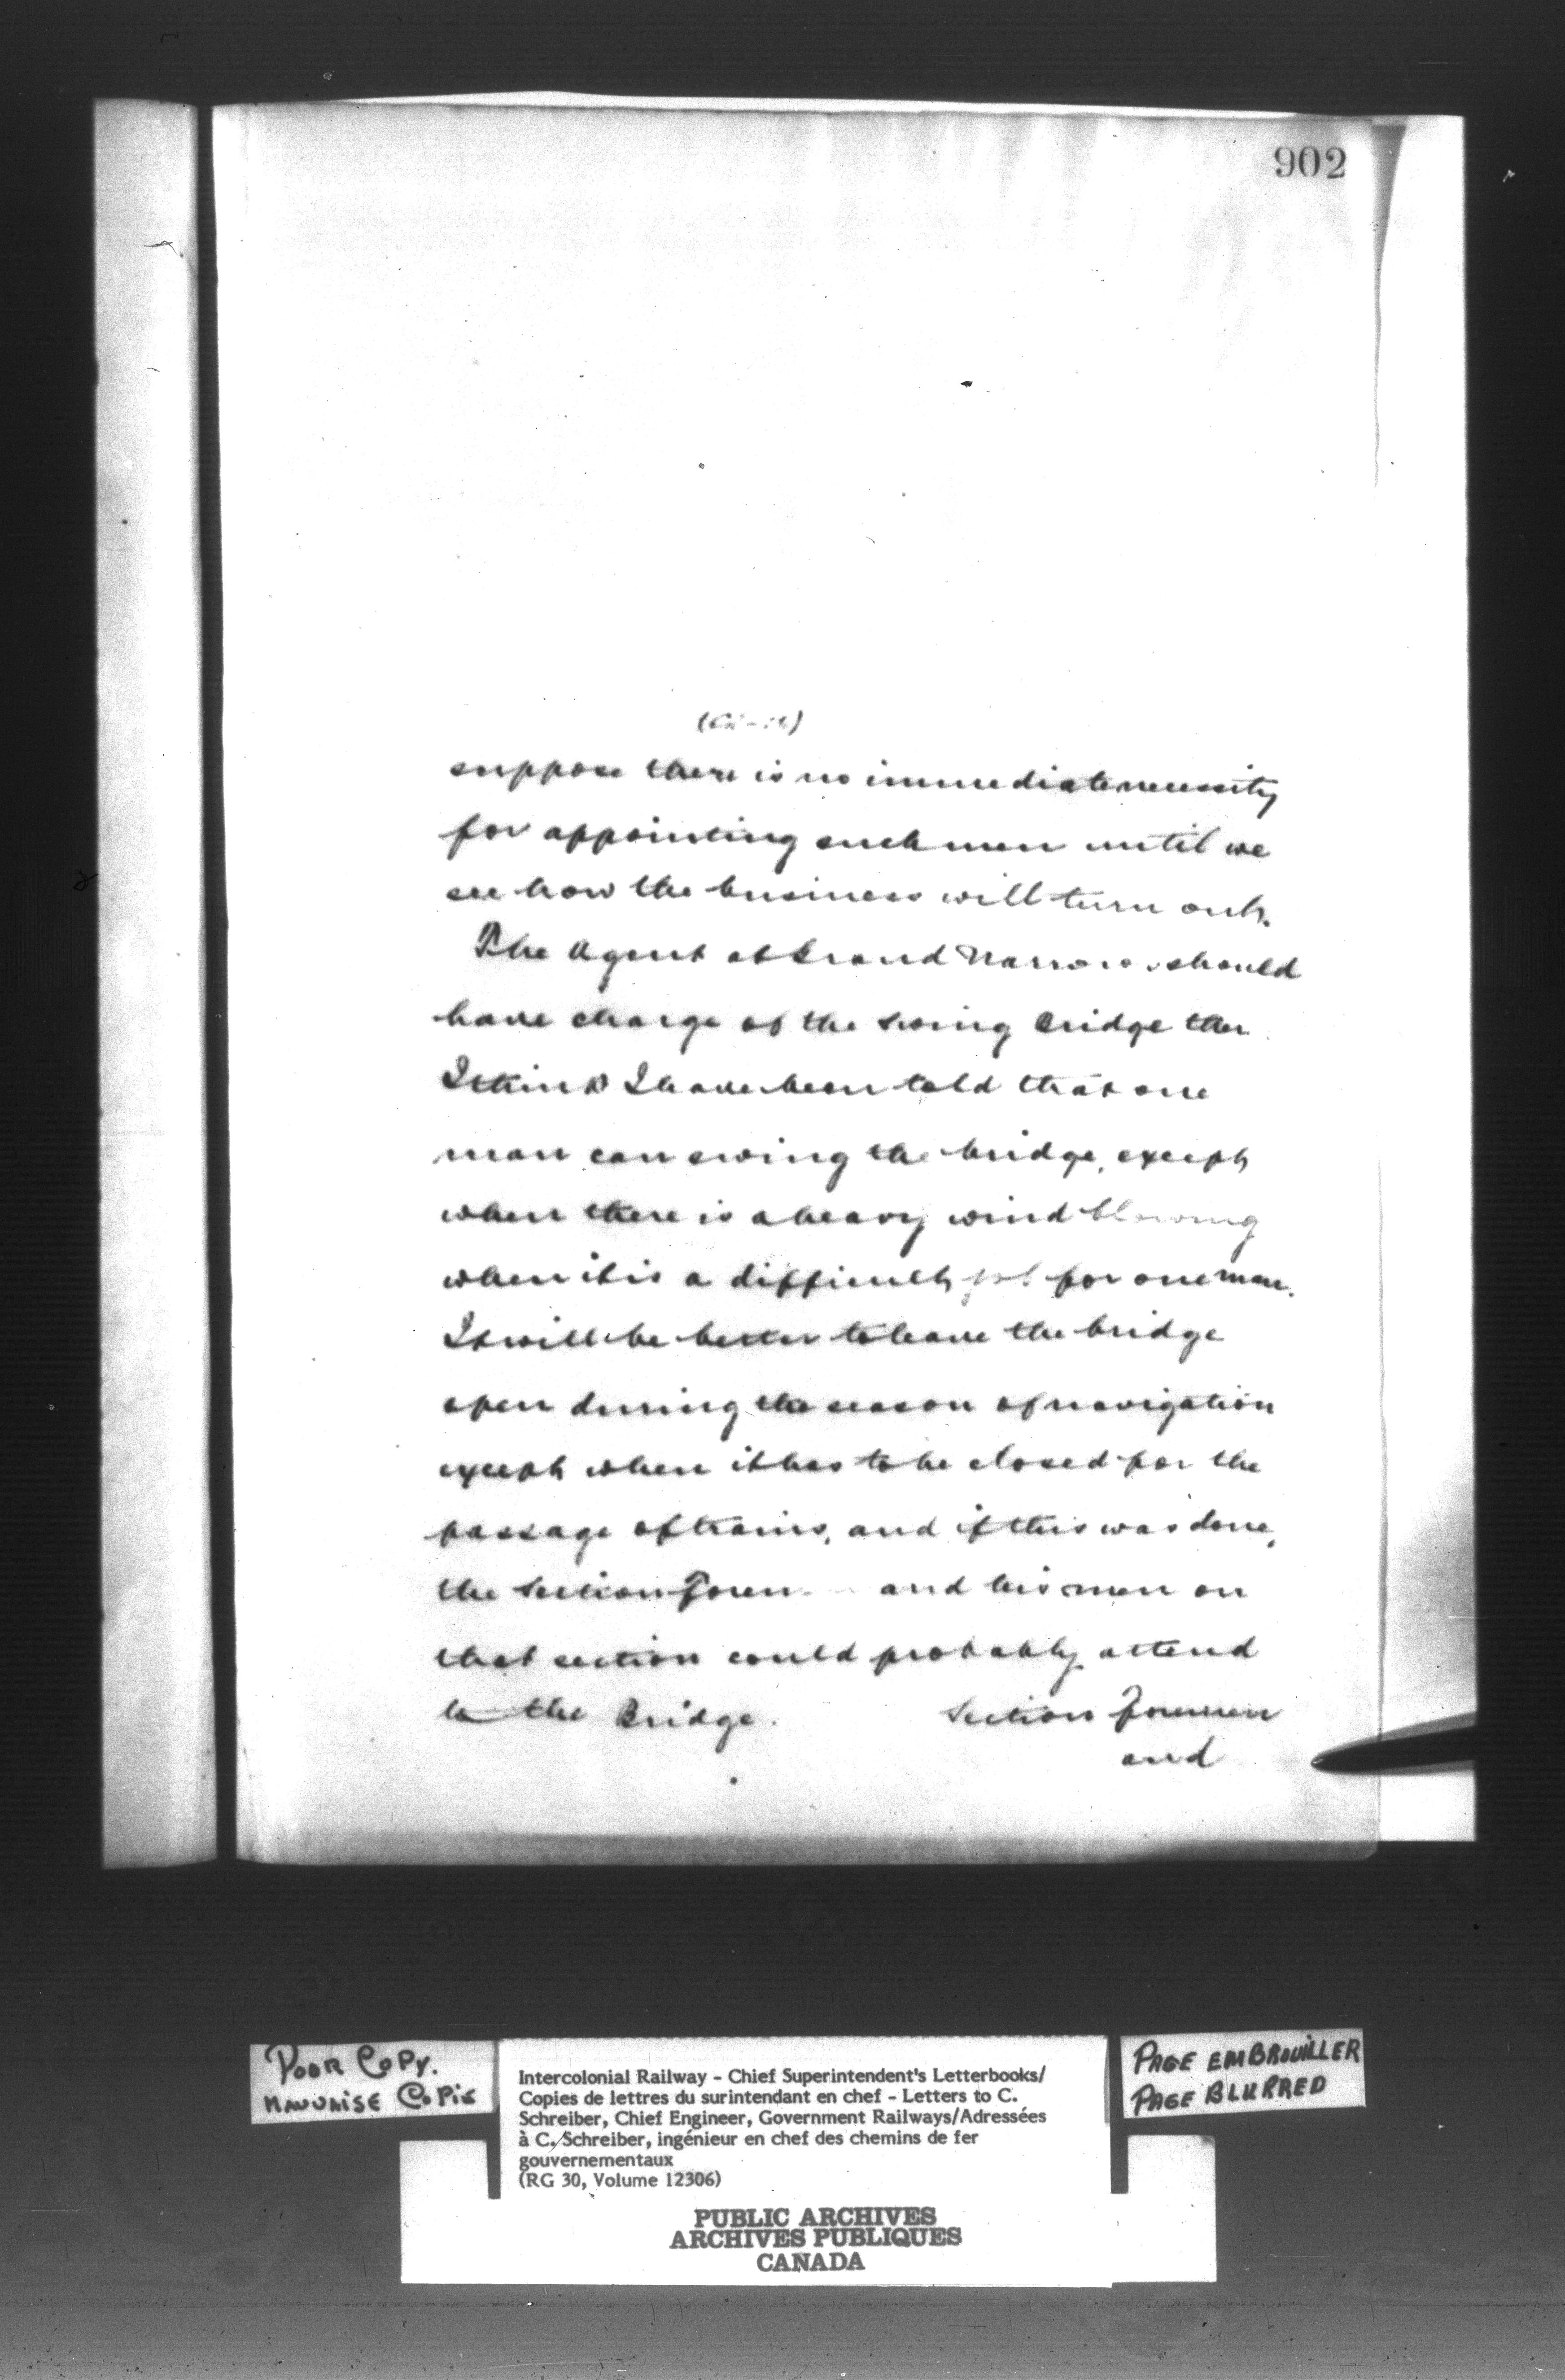 902
suppose there is no immediate necessity
for appointing such men until we
see how the business will turn out.
The Agent at Grand Narrows should
have charge of the swing bridge ther
I think I have been told that one
man can swing the bridge, except
when there is a heavy wind blowing
when it is a difficult job for one man.
It will be better to leave the bridge
open during the season of navigation
except when it has to be closed for the
passage of trains, and if this was done,
the Section and his men on
that section could probably attend
to the Bridge. Section Foremen
and
POOR COPY.
MAUVAISE COPIE
Intercolonial Railway - Chief Superintendent's Letterbooks/
Copies de lettres du surintendant en chef - Letters to C.
Schreiber, Chief Engineer, Government Railways/Adressées
à C. Schreiber, ingénieur en chef des chemins de fer
gouvernementaux
(RG 30, Volume 12306)
PAGE EMBROUILLER
PAGE BLURRED
PUBLIC ARCHIVES
ARCHIVES PUBLIQUES
CANADA